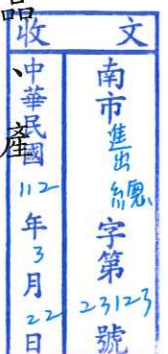 品、產
收文
南市進出總字第23123號
中華民國112年3月22日